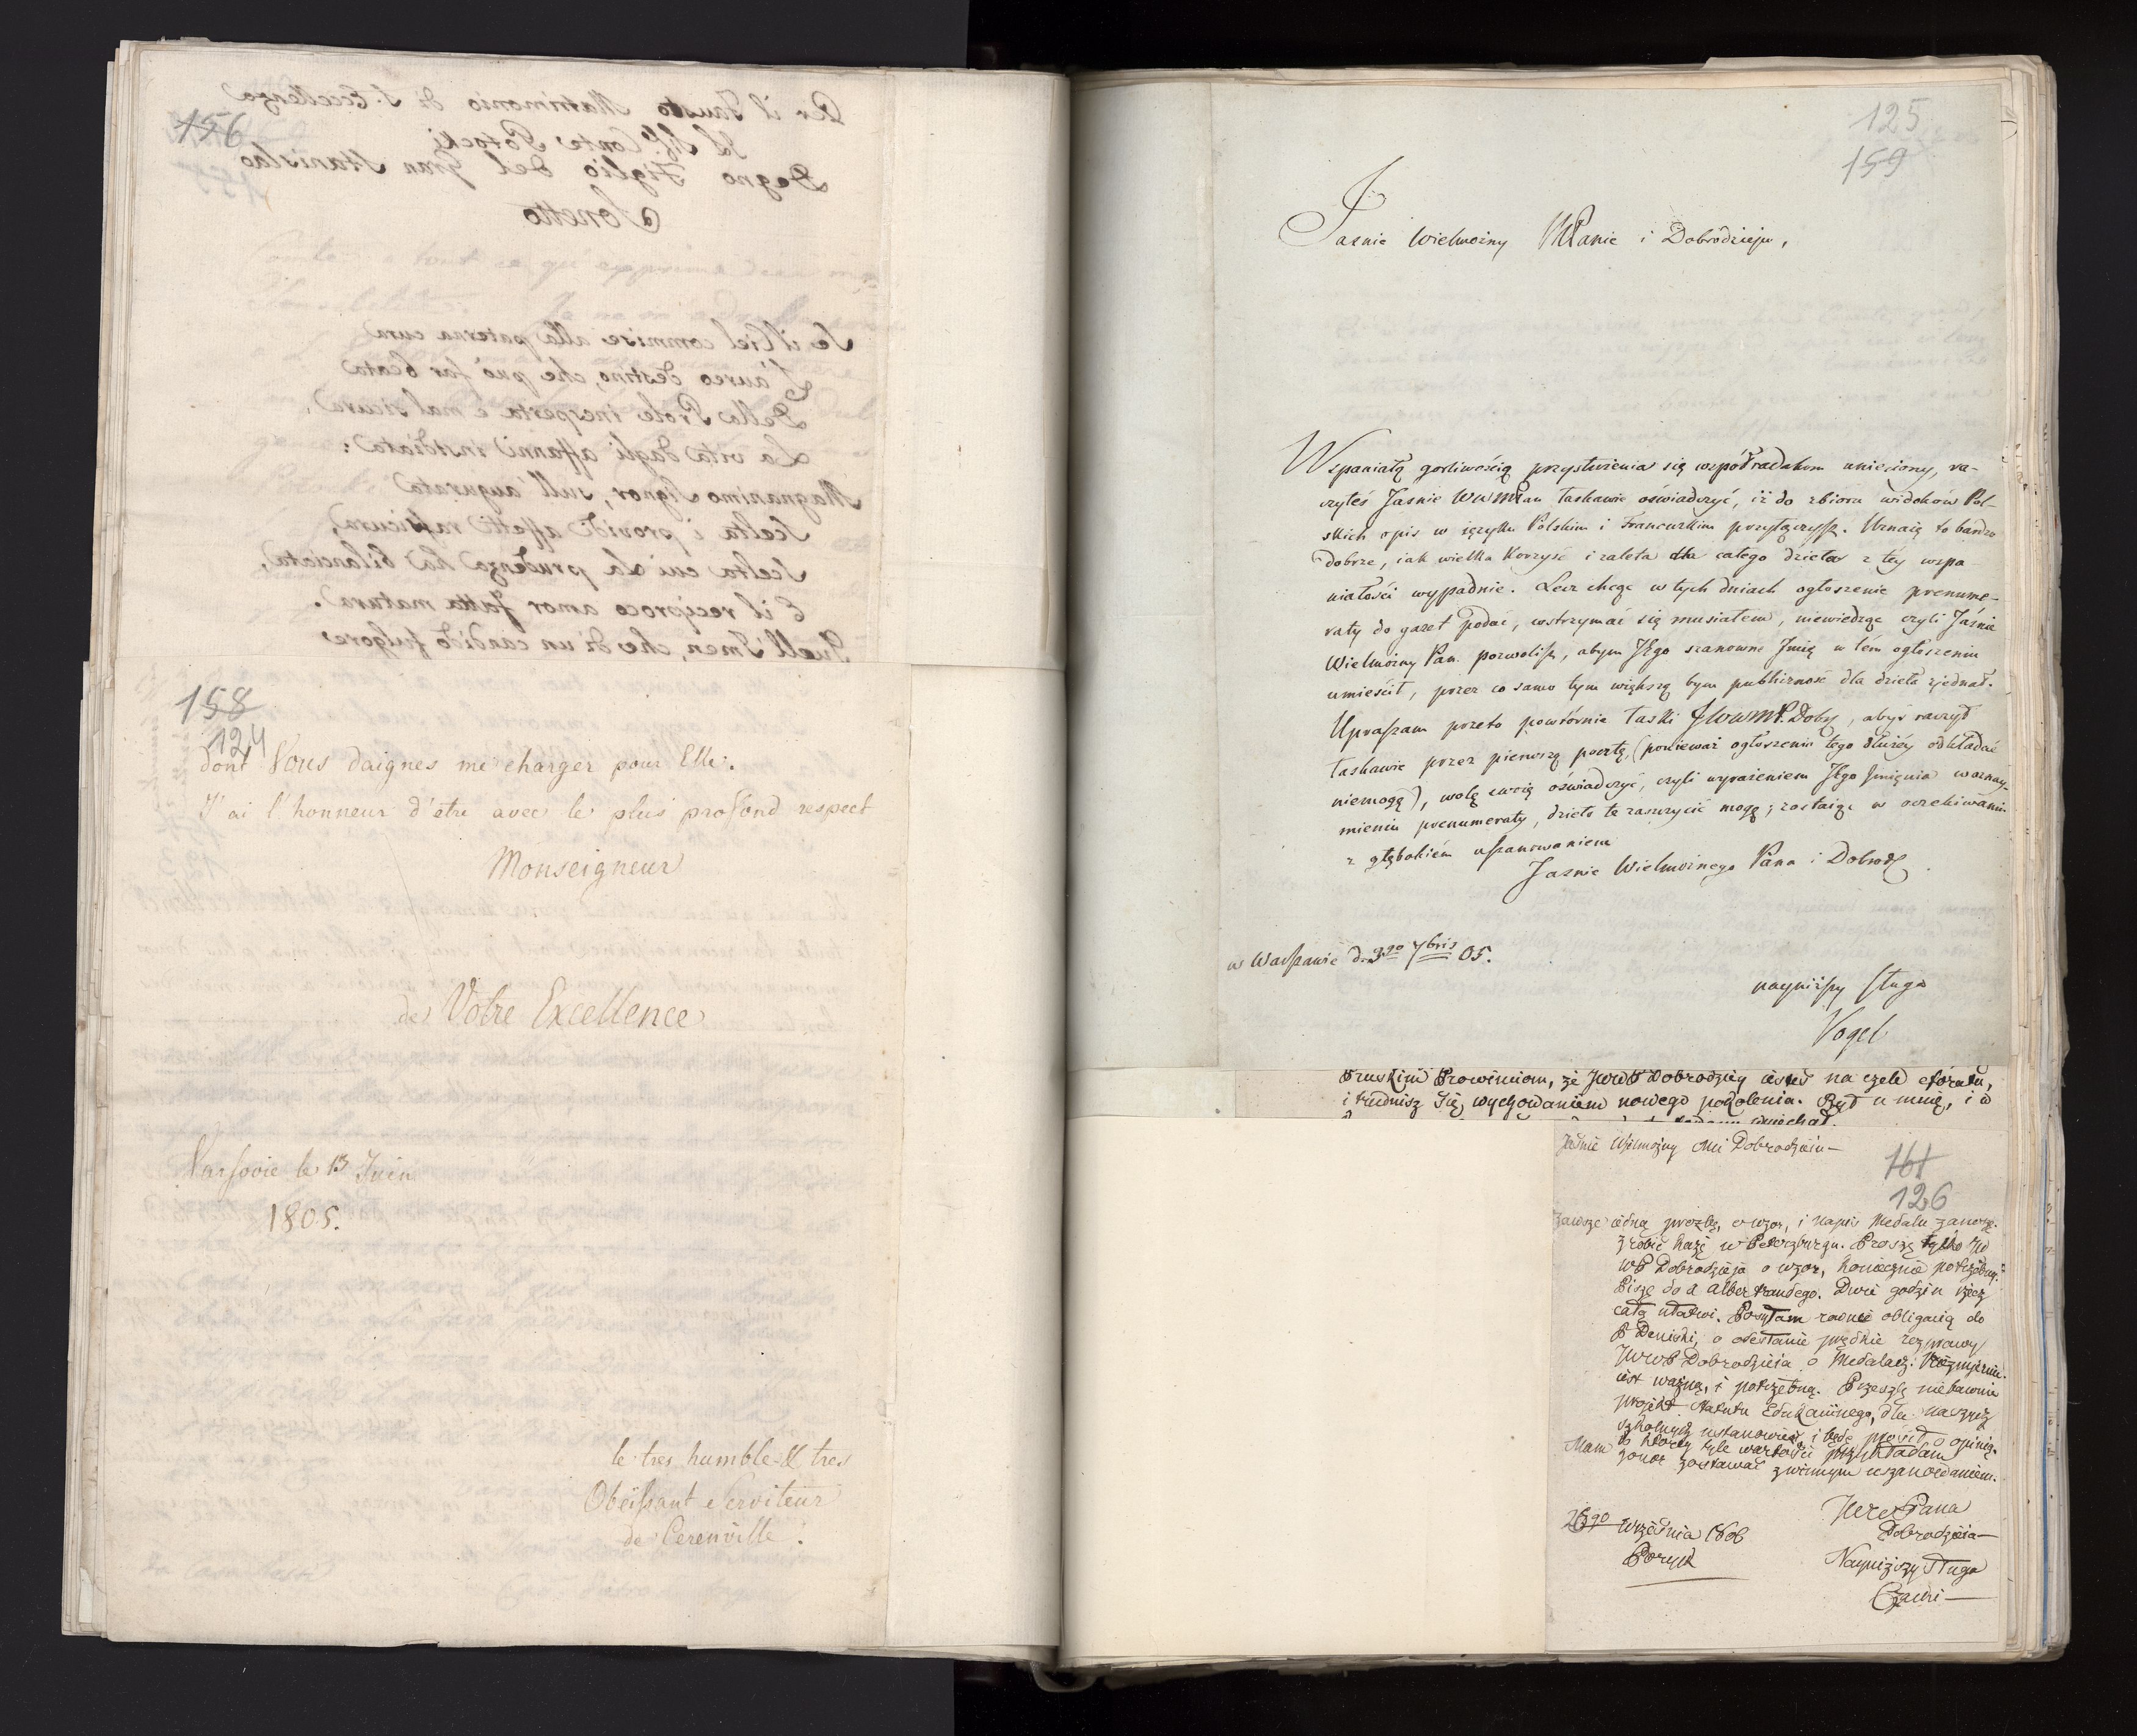 156
Per il Fausto Matrimonio di S. Eccellenza
Il Sigr. Conte Potocki
Degno Figlio del Gran Stanislao
Sonetto
Se il Ciel commise alla paterna cura
L'aureo destino, che può far beata
Della Prole inesperta e mal sicura,
La vita dagli affanni insidiata:
Magnanimo Signor, sull'augurata
Scelta i providi affetti rassicura,
Scelta cui la prudenza ha bilanciata,
E il reciproco amor fatta matura.
Quell'Imen, che di un candido fulgore
158
124
dont Vous daignes me charger pour Elle.
J'ai l'honneur d'etre avec le plus profond respect
Monseigneur
de Votre Excellence
Varsovie le 13 Juin
1805.
le tres humble & tres
Obeïssant Serviteur
de Cerenville.
125
159
Jasnie Wielmożny MPanie i Dobrodzieju,
Wspaniałą gorliwością przysłużenia się współrodakom uniesiony, ra-
czyłeś Jasnie WWMPan łaskawie oświadczyć, iż do zbioru widoków Pol-
skich opis w ięzyku Polskim i Francuzkim przyłączysz. Uznaię to bardzo
dobrze, iak wielka korzyść i zaleta dla całego dzieła z téy wspa-
niałości wypadnie. Lecz chcąc w tych dniach ogłoszenie prenume-
raty do gazet podać, wstrzymać się musiałem, niewiedząc czyli Jaśnie
Wielmożny Pan pozwolisz, abym JEgo szanowne Jmię w tém ogłoszeniu
umieścił, przez co samo tym większą bym publiczność dla dzieła zjednał.
Upraszam przeto powtórnie łaski JWWMP. Dobę, abyś raczył
łaskawie przez pierwszą pocztę, (ponieważ ogłoszenia tego dłużéy odkładać
niemogę), wolę swoią oświadczyć, czyli wyrażeniem JEgo Jmięnia w oznay-
mieniu prenumeraty, dzieło te zaszczycić mogę; zostaiąc w oczekiwaniu
z głębokiém uszanowaniem
Jasnie Wielmożnego Pana i Dobrodz
w Warszawie d. 9go 7bris 05.
nayniższy sługa
Vogel
Pruskim Prowincion, że JWWP Dobrodziey iesteś na czele eforatu,
i trudnisz się wychowaniem nowego pokolenia. Był u mnie, i
161
126
Jaśnie Wielmożny Mci Dobrodzieiu—
Zawsze iedną prozbę, o wzor, i napis Medalu zanoszę.
Zrobić każę w Peterzburgu. Proszę tylko JW
WP Dobrodzieja o wzor, koniecznie potrzebny.
Piszę do X Albertrandego. Dwie godzin rzecz
całą ułatwi. Posyłam razem obligacią do
P Deniski, o odesłanie prędkie rozprawy
JWWP Dobrodzieia o Medalach. Niezmiernie
iest ważną, i potrzebną. Przeszlę niebawnie
projekt Statutu Edukacijnego, dla naszych
szkolnych ustanowień, i będę prosił o opinią,
do ktorey tyle wartości przykładam
Mam honor zostawać z winnym uszanowaniem.
JWWPana
Dobrodzieia—
Nayniższy Sługa
Czacki—
26go Września 1806
Poryck